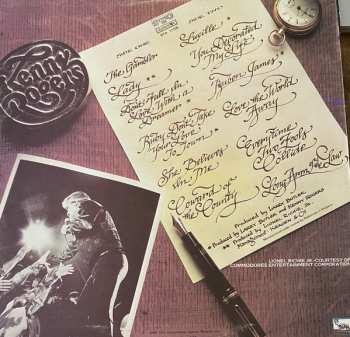 Kenny
Rogers
SIDE ONE
The Gambler
Lady **
Don't Fall In
Love With a
Dreamer *
Ruby Don't Take
Your Love
To Town
She Believes
In Me
Coward of
the County
SIDE TWO
Lucille
You Decorated
My Life
Reuben James
Love the World
Away
Every time
Two Fools
Collide
Long Arm of the Law
Produced by Larry Butler
* Produced by Larry Butler and Kenny Rogers
** Produced by Lionel Richie, Jr.
LIONEL RICHIE JR.-COURTESY OF
COMMODORES ENTERTAINMENT CORPORATION